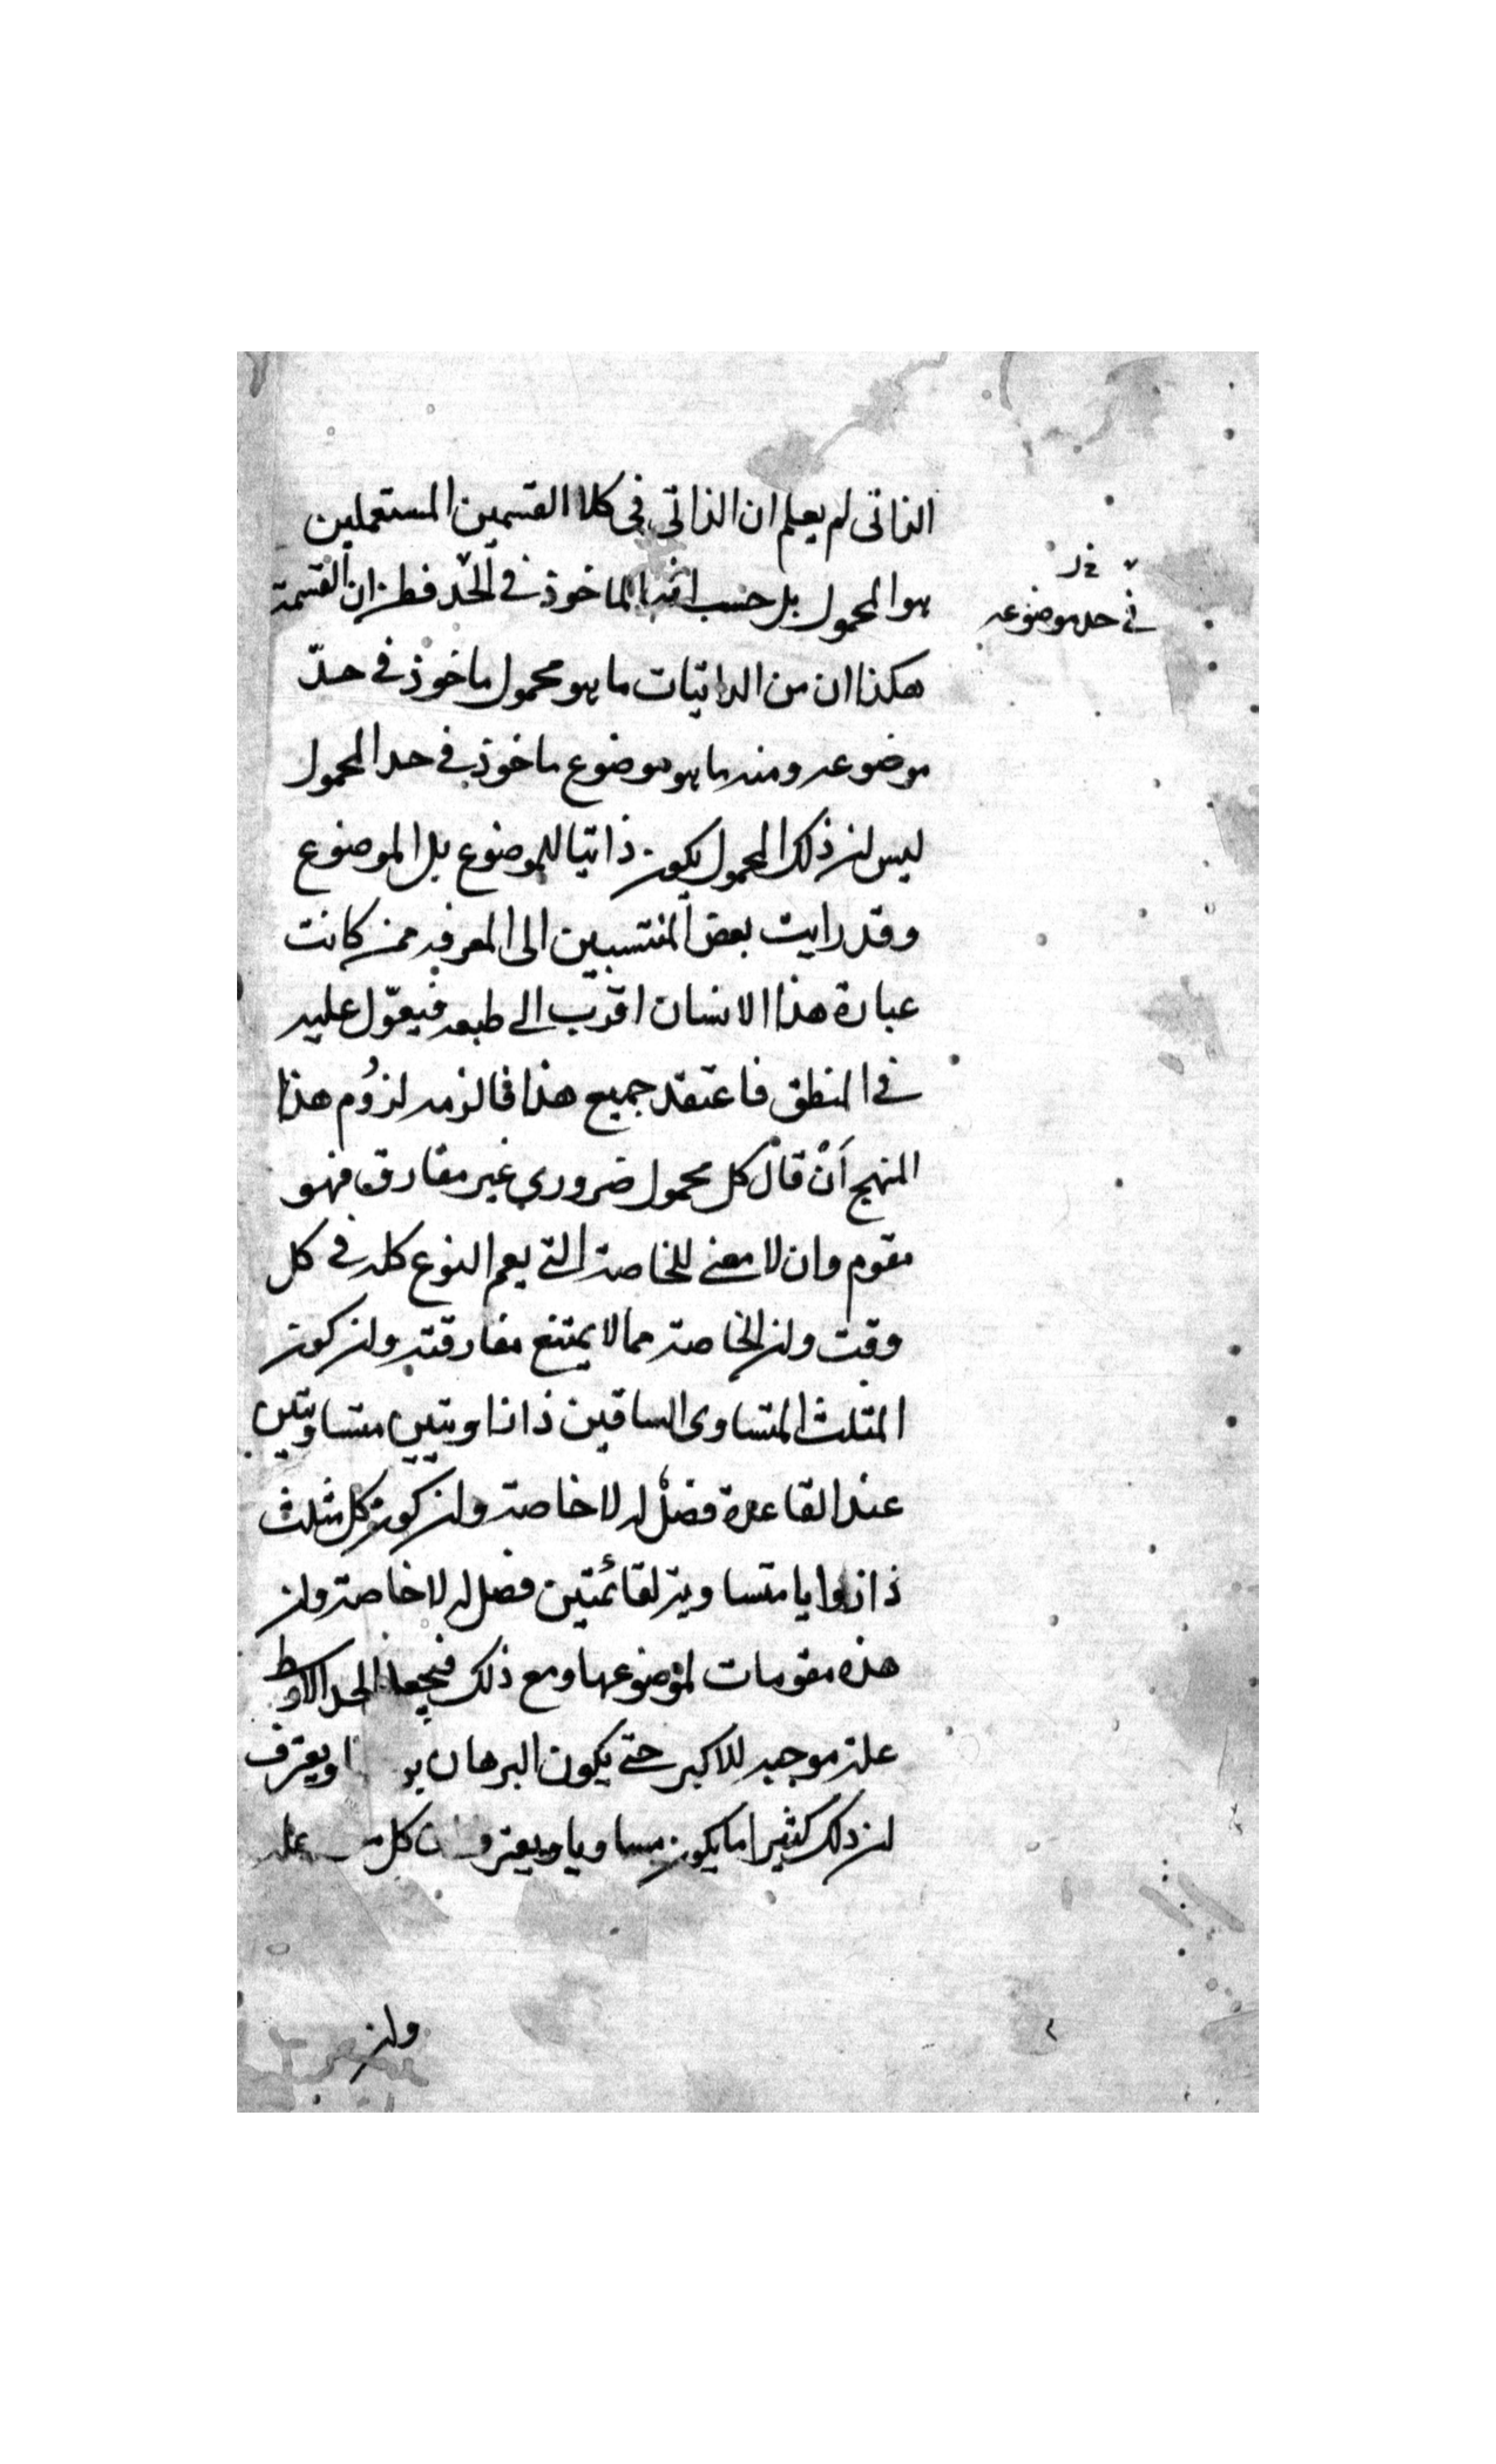 الذاتى لم يعلم ان الذاتى فى كلا القسمين المستعملين
هو المحمول بل حسب انه الماخوذ فى الحد فظن ان القسمة
فى حد موضوعه
هكذا ان من الذاتيات ما هو محمول ماخوذ فى حدّ
موضوعه ومنه ما هو موضوع ماخوذ فى حد المحمول
ليس ان ذلك المحمول يكون ذاتيا للموضوع بل الموضوع
وقد رايت بعض المنتسبين الى المعرفه ممن كانت
عبارة هذا الانسان اقرب الى طبعه فيعوّل عليه
فى المنطق فاعتقد جميع هذا فالزمه لزوُم هذا
المنهج اَنْ قال كل محمول ضرورى غير مفارق فهو
مقوم وان لا معنى للخاصة التى يعم النوع كله فى كل
وقت وان الخاصة مما لا يمتنع مفارقته وان كون
المثلث المتساوى الساقين ذا زاويتين متساويتين
عند القاعدة فصلْ له لا خاصة وان كون كل مثلث
ذا زوايا متساوية لقائمتين فصل له لا خاصة وان
هذه مقومات لموضوعها ومع ذلك فيجعل الحد الاوسط
علة موجبه للاكبر حتى يكون البرهان ويعترف
ان ذلك كثيرا ما يكون مساويا ويعترف كل
وان